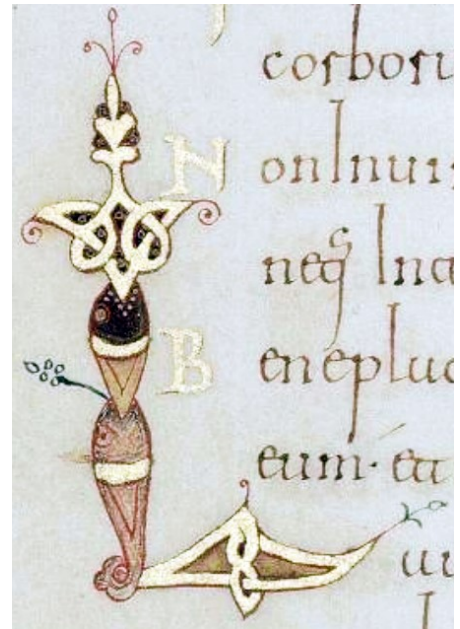 corboru
Non Inuiri
neq͛ Inta
Beneplac
eum· et
Lau